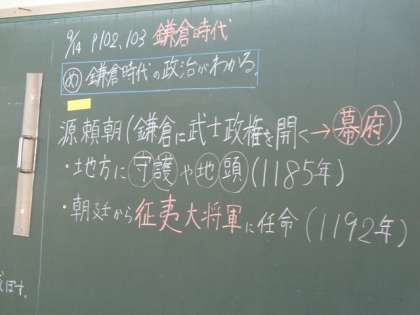 9/14 P102、103 鎌倉時代
㋱ 鎌倉時代の政治がわかる。
源頼朝(鎌倉に武士政権を開く→幕府)
・地方に守護や地頭(1185年)
・朝廷から征夷大将軍に任命(1192年)
ぼす。